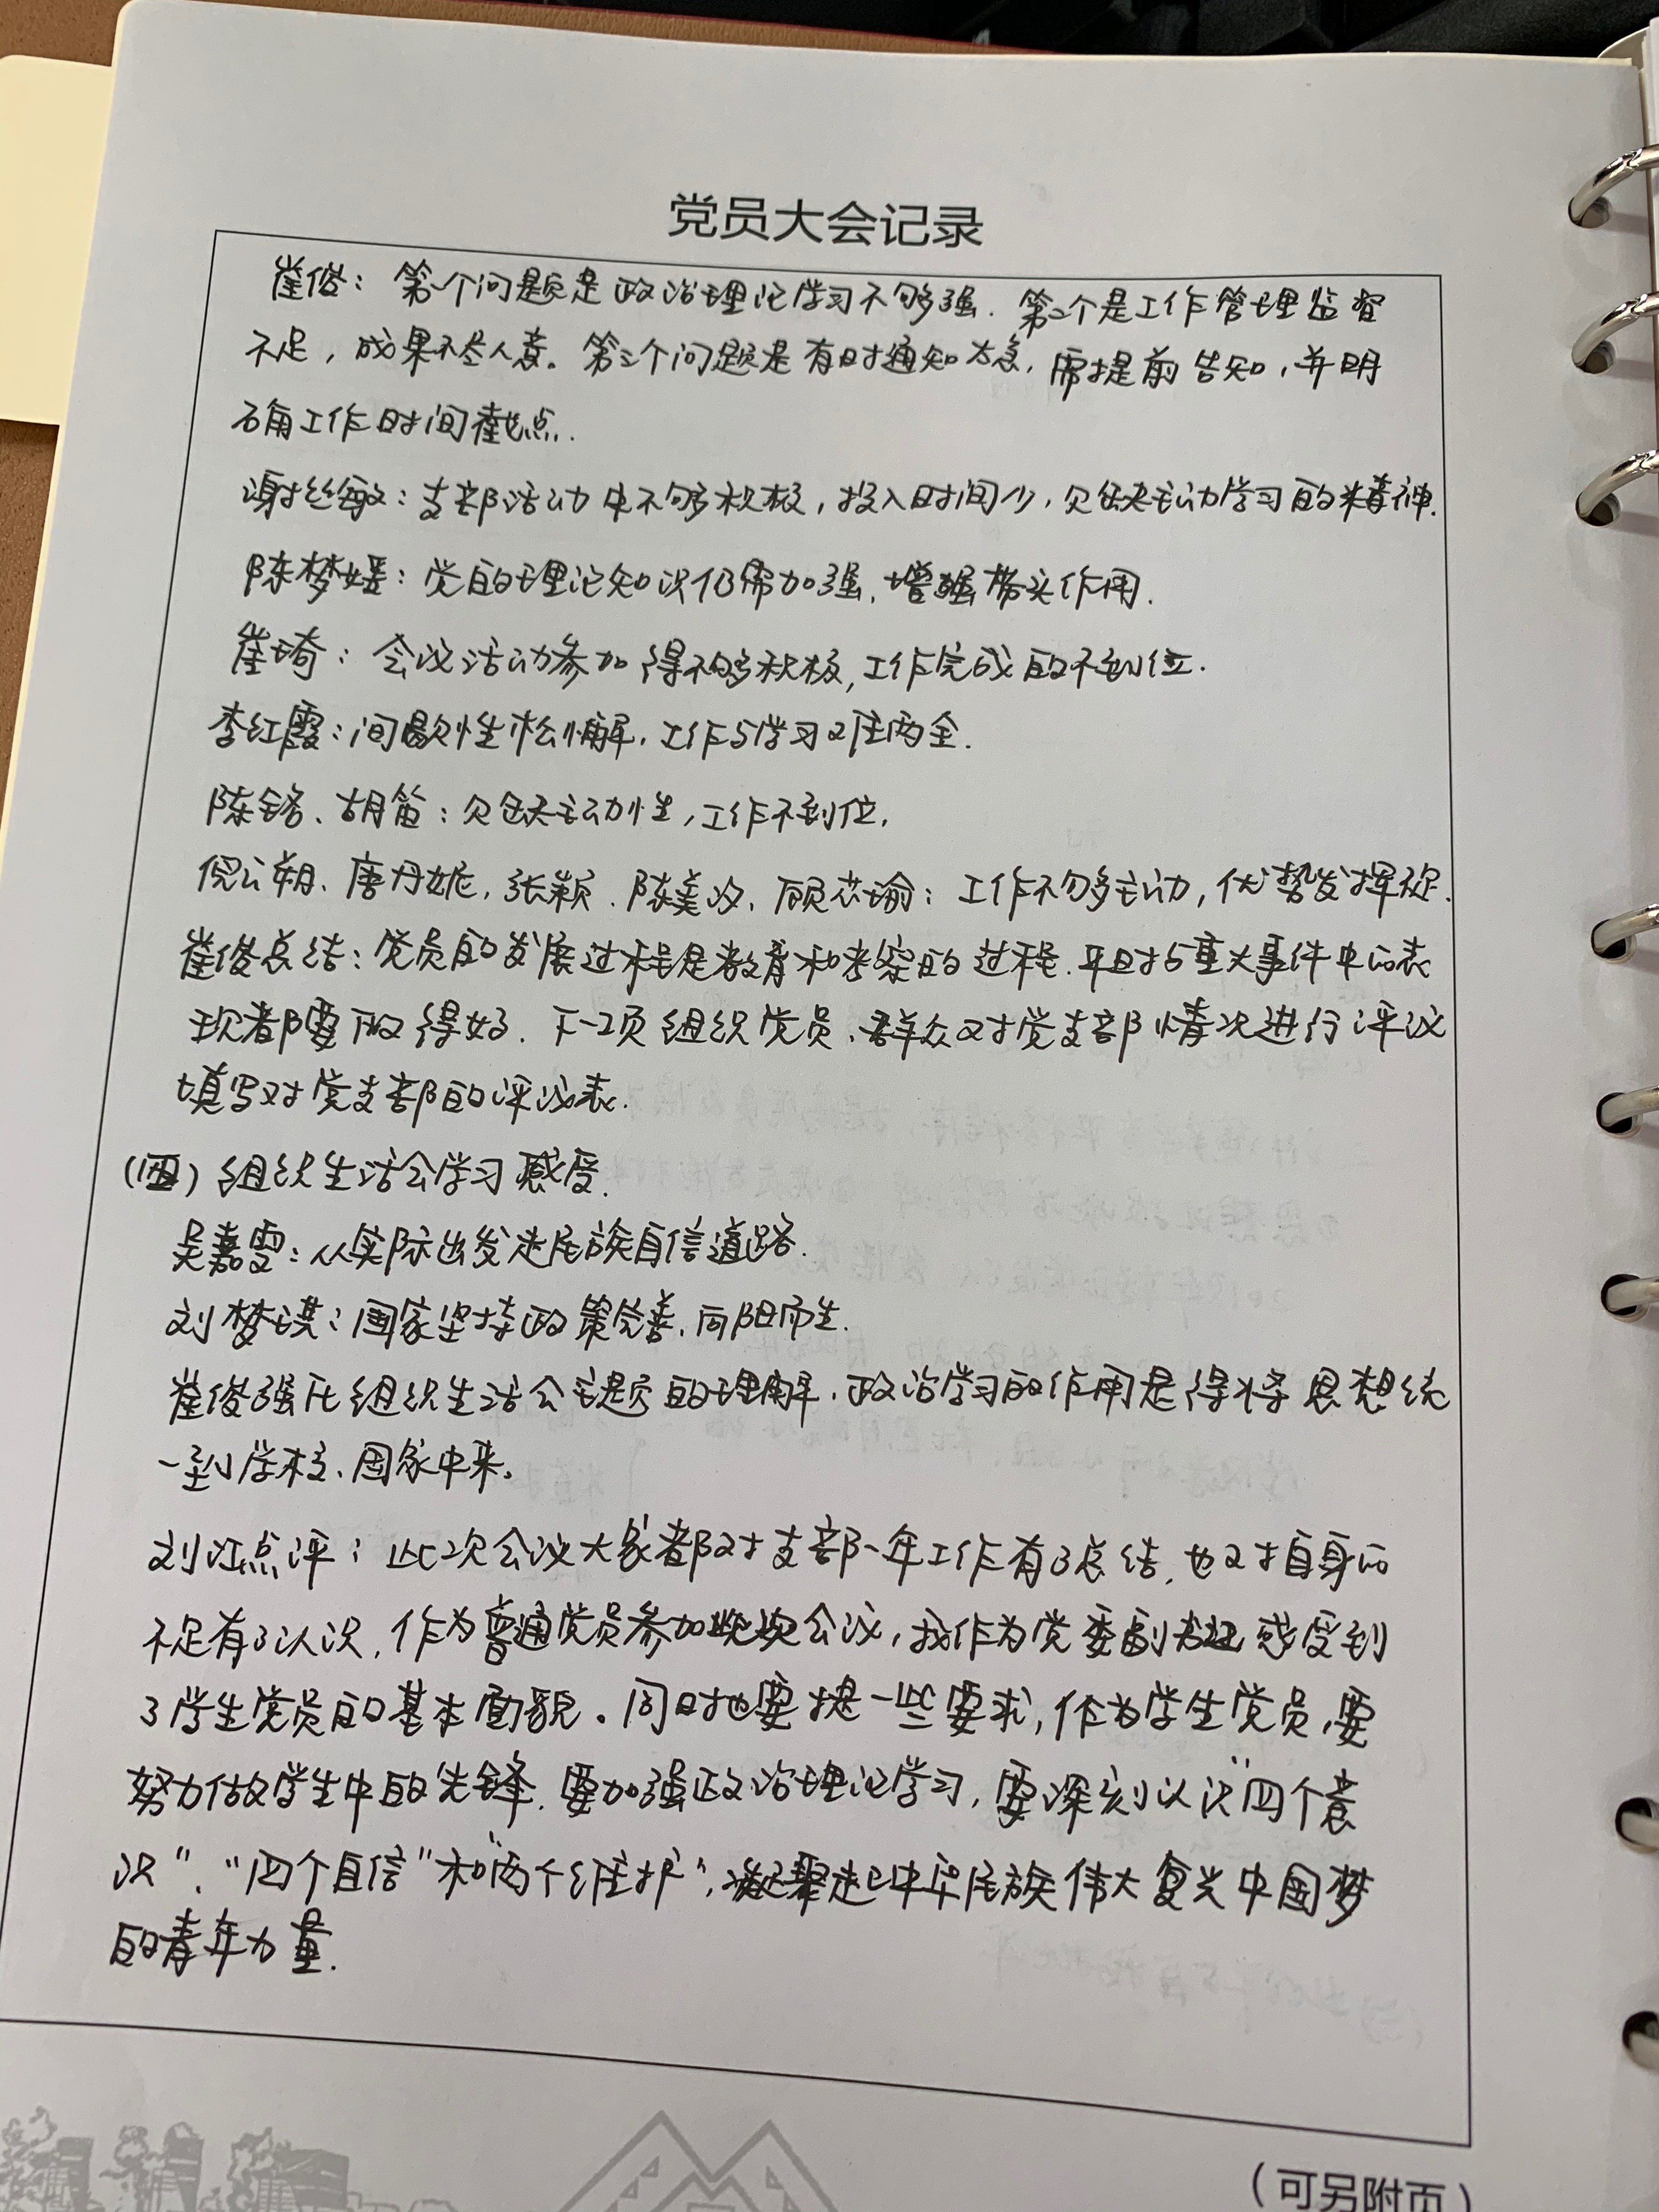 党员大会记录
崔俊：第一个问题是政治理论学习不够强．第二个是工作管理监督
不足，成果不尽人意。第三个问题是有时通知太急，需提前告知，并明
确工作时间截点．
谢丝敏：支部活动中不够积极，投入时间少，欠缺主动学习的精神．
陈梦媛：党的理论知识仍需加强、增强带头作用．
崔琦：会议活动参加得不够积极，工作完成的不到位．
李红霞：间歇性松懈，工作与学习难两全．
陈铭、胡笛：欠缺主动性，工作不到位．
倪云朔、唐丹妮，张颖、陈美汐、顾芯瑜：工作不够主动，优势发挥不足．
崔俊总结：党员的发展过程是教育和考察的过程．平时与重大事件中的表
现都要做得好．下一项组织党员、群众对党支部情况进行评议
填写对党支部的评议表．
（四）组织生活会学习感受．
吴嘉雯：从实际出发走民族自信道路．
刘梦琪：国家坚持政策完善、向阳而生．
崔俊强化组织生活会主题的理解．政治学习的作用是得将思想统
一到学校、国家中来。
刘江点评：此次会议大家都对支部一年工作有了总结，也对自身的
不足有了认识．作为普通党员参加此次会议，我作为党委副书记感受到
了学生党员的基本面貌。同时也要提一些要求，作为学生党员，要
努力做学生中的先锋．要加强政治理论学习，要深刻认识“四个意
识”、“四个自信”和“两个维护”，凝聚起中华民族伟大复兴中国梦
的青年力量．
（可另附页）